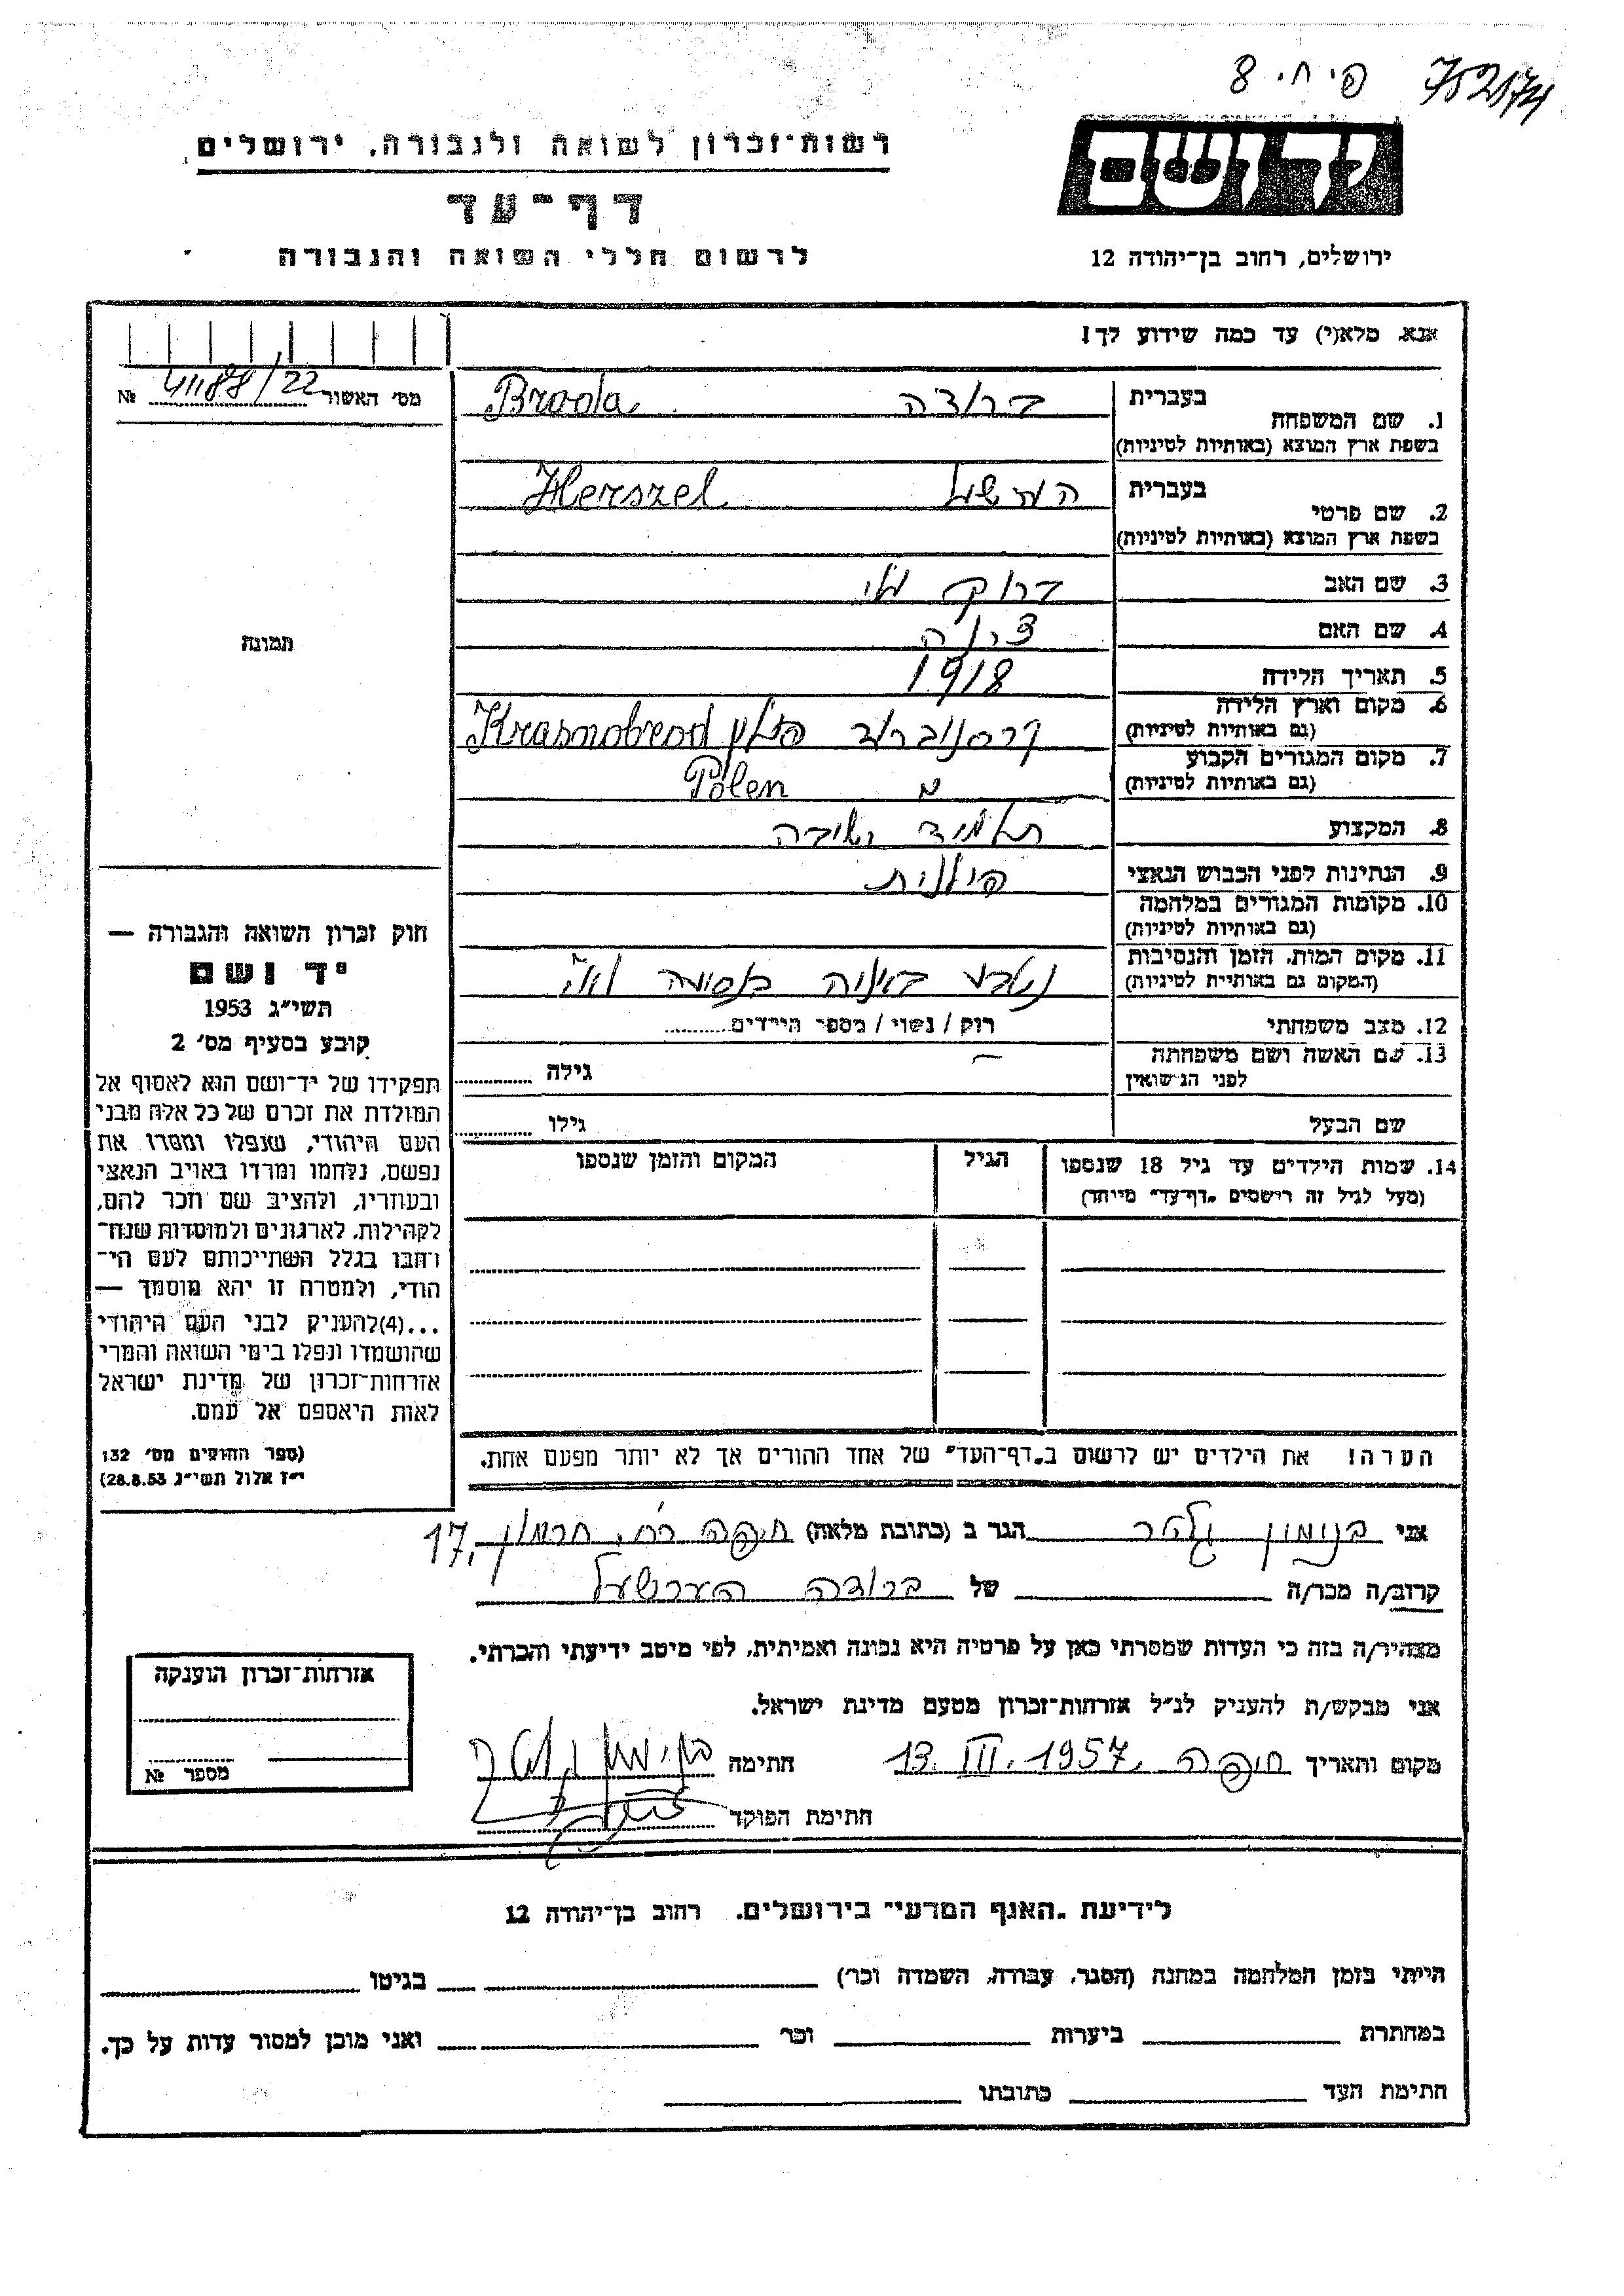 פ י ח י. 8
יד ושם
רשות־זכרון לשואה ולגבורה, ירושלים
דף־עד
לרשום חללי השואה והגבורה
ירושלים, רחוב בן־יהודה 12
אנא, מלא(י) עד כמה שידוע לך!
מס׳ האשור № 41188/22
תמונה
1. שם המשפחה
בעברית ברודה Broda
בשפת ארץ המוצא (באותיות לטיניות)
2. שם פרטי
בעברית הרשל Herszel
בשפת ארץ המוצא (באותיות לטיניות)
3. שם האב
4. שם האם
5. תאריך הלידה 1918
6. מקום וארץ הלידה קרסנוברוד פולין Krasnobrod
(גם באותיות לטיניות)
7. מקום המגורים הקבוע Polen
(גם באותיות לטיניות)
8. המקצוע תלמיד ישיבה
9. הנתינות לפני הכבוש הנאצי פולנית
10. מקומות המגורים במלחמה
(גם באותיות לטיניות)
11. מקום המות, הזמן והנסיבות נטבע באניה בנסיעה
(המקום גם באותיות לטיניות)
12. מצב משפחתי רוק / נשוי / מספר הילדים
13. שם האשה ושם משפחתה גילה
לפני הנישואין
שם הבעל גילו
14. שמות הילדים עד גיל 18 שנספו הגיל המקום והזמן שנספו
(מעל לגיל זה רושמים „דף־עד״ מיוחד)
הערה! את הילדים יש לרשום ב„דף־העד״ של אחד ההורים אך לא יותר מפעם אחת.
חוק זכרון השואה והגבורה —
יד ושם
תשי״ג 1953
קובע בסעיף מס׳ 2
תפקידו של יד־ושם הוא לאסוף אל
המולדת את זכרם של כל אלה מבני
העם היהודי, שנפלו ומסרו את
נפשם, נלחמו ומרדו באויב הנאצי
ובעוזריו, ולהציב שם וזכר להם,
לקהילות, לארגונים ולמוסדות שנח־
רבו בגלל השתייכותם לעם הי־
הודי, ולמטרה זו יהא מוסמך —
...(4)להעניק לבני העם היהודי
שהושמדו ונפלו בימי השואה והמרי
אזרחות־זכרון של מדינת ישראל
לאות היאספם אל עמם.
(ספר החוקים מס׳ 132
י״ז אלול תשי״ג 28.8.53)
אני בנימין הגר ב (כתובת מלאה) חיפה רח׳ חרמון 17,
קרוב/ה מכר/ה של ברודה הערשעל
מצהיר/ה בזה כי העדות שמסרתי כאן על פרטיה היא נכונה ואמיתית, לפי מיטב ידיעתי והכרתי.
אני מבקש/ת להעניק לנ״ל אזרחות־זכרון מטעם מדינת ישראל.
מקום ותאריך חיפה 13. III. 1957. חתימה
חתימת הפוקד
אזרחות־זכרון הוענקה
מספר №
לידיעת „האגף המדעי״ בירושלים. רחוב בן־יהודה 12
הייתי בזמן המלחמה במחנה (הסגר, עבודה, השמדה וכו׳) בגיטו
במחתרת ביערות וכו׳ ואני מוכן למסור עדות על כך.
חתימת העד כתובתו